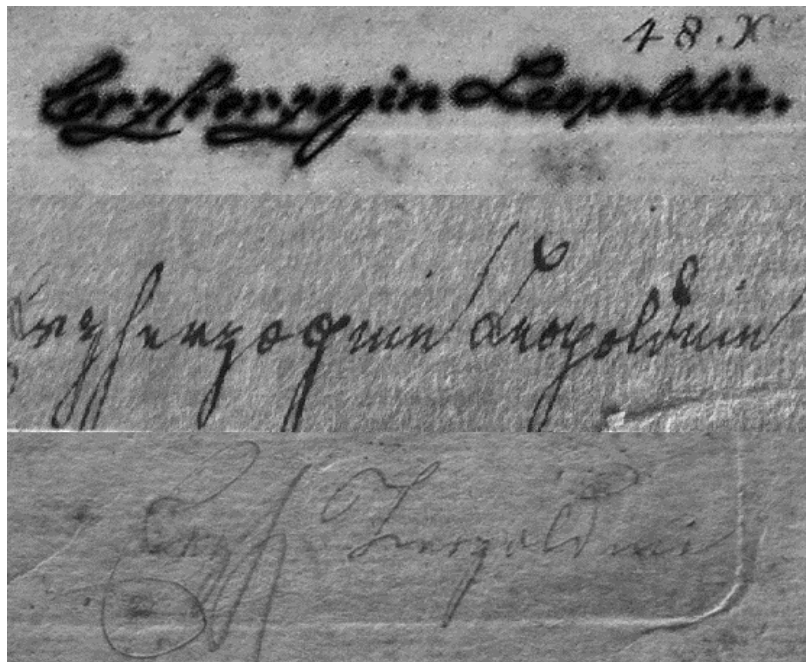 48.X
Erzherzogin Leopoldin.
Erzherzoginn Leopoldinn
Erzh Leopoldin